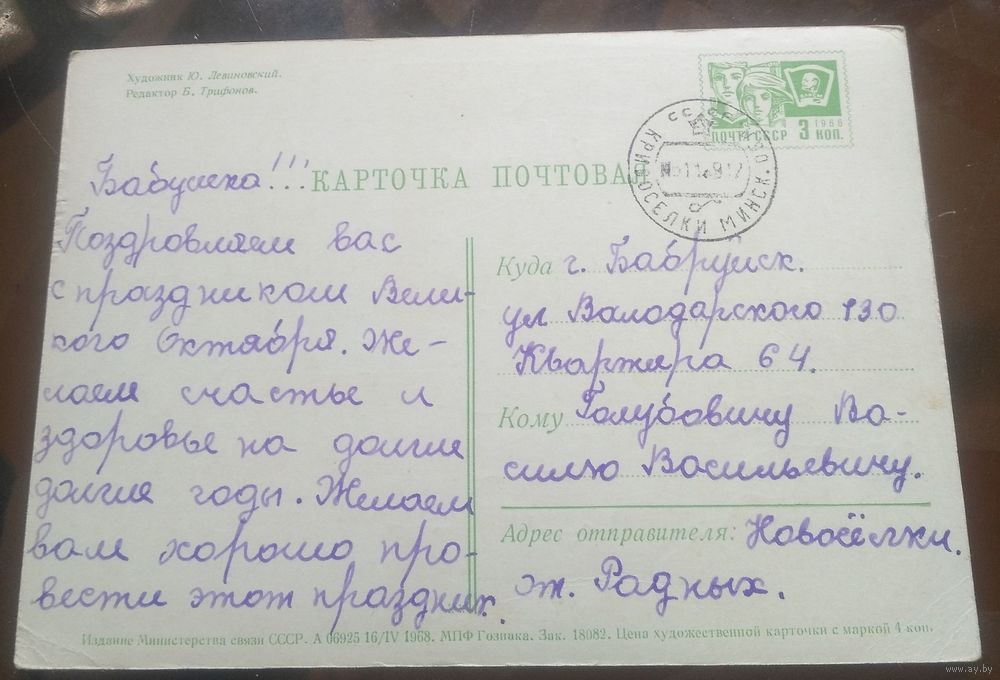 Художник Ю. Левиновский.
Редактор Б. Трифонов.
1966
ПОЧТА СССР 3 КОП.
СССР
КРИВОСЕЛКИ МИНСК. ОБЛ
КАРТОЧКА ПОЧТОВАЯ
Бабушка!!!
Поздровляем вас
с праздником Вели-
кого Октября. Же-
лаем счастье и
здоровье на долгие
долгие годы. Желаем
вам хорошо про-
вести этот праздник.
Куда г. Бабруйск.
ул Валодарского 130
Квартира 64.
Кому Голубовичу Ва-
силю Васильевичу.
Адрес отправителя: Новосёлки.
от. Радных.
Издание Министерства связи СССР. А 06925 16/IV 1968. МПФ Гознака. Зак. 18082. Цена художественной карточки с маркой 4 коп.
www.ay.by